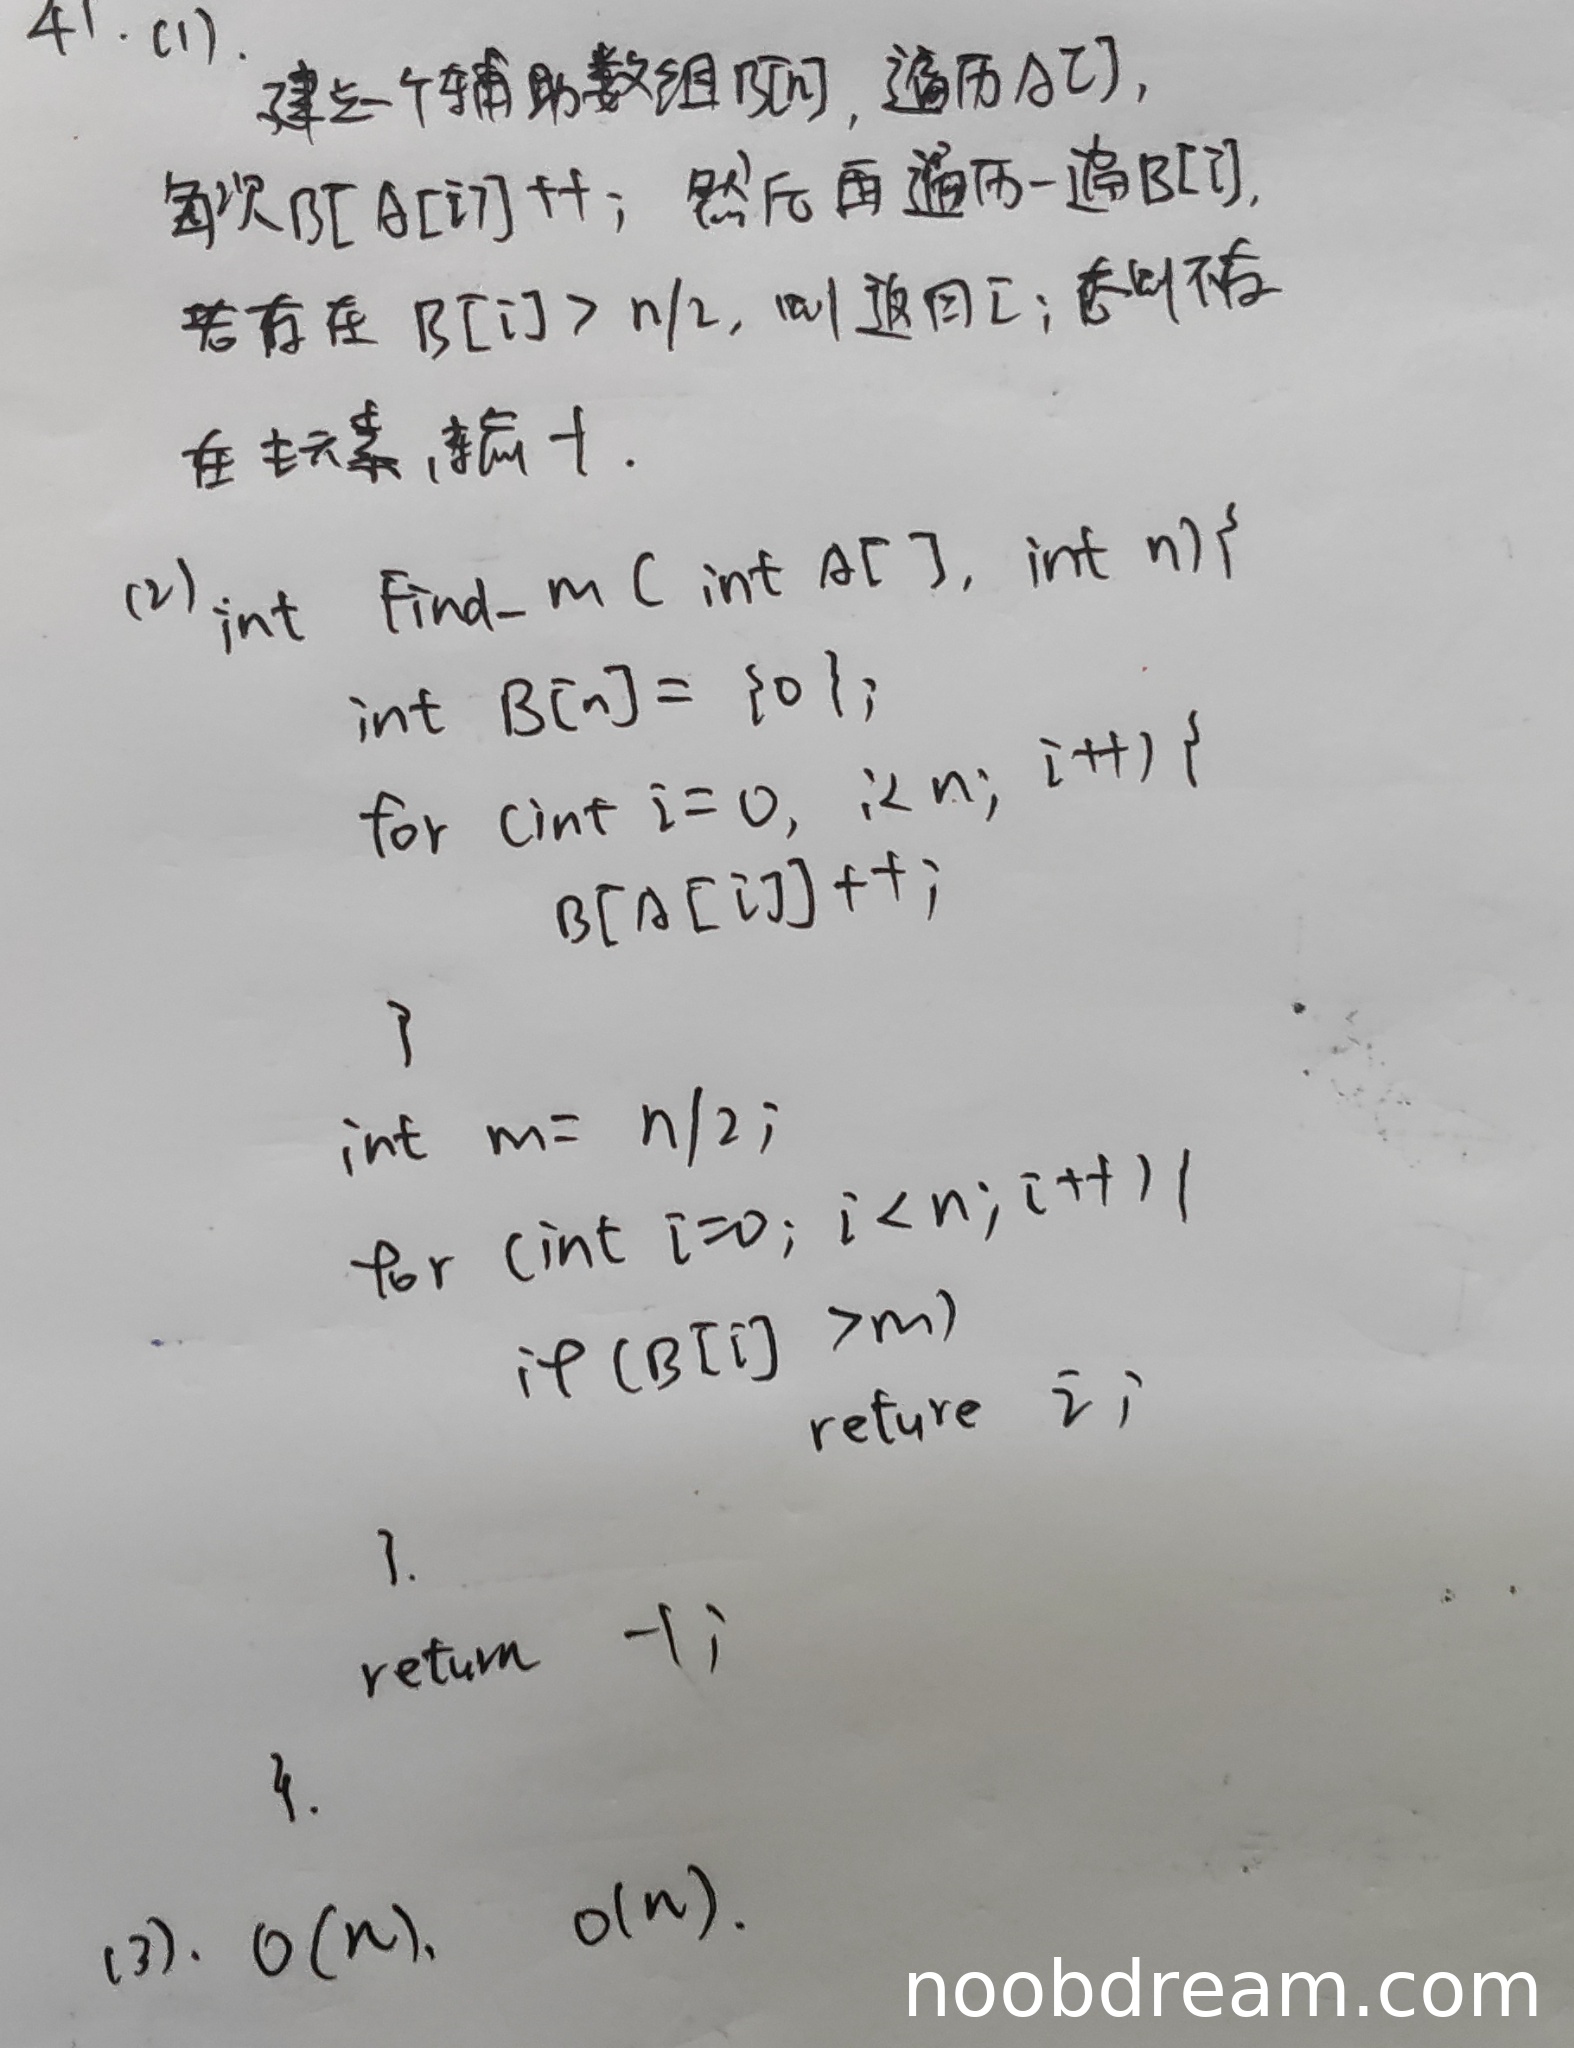 41.(1).
建立一个辅助数组B[n], 遍历A[],
每次B[A[i]]++; 然后再遍历一遍B[i],
若存在 B[i] > n/2, 则返回i; 否则不存
在主元素, 输 -1.
(2) int Find_m ( int A[ ], int n){
int B[n] = {0};
for (int i=0, i<n; i++) {
B[A[i]]++;
}
int m= n/2;
for (int i=0; i<n; i++) {
if (B[i] >m)
reture i;
}.
return -1;
}.
(3). O(n). O(n).
noobdream.com